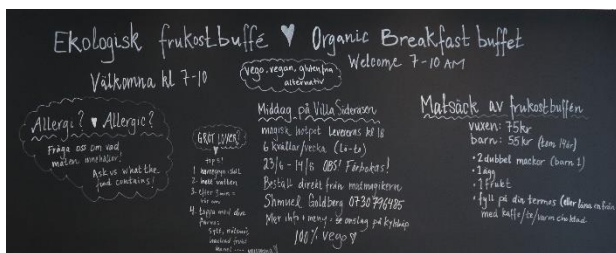 Ekologisk frukostbuffé ♥ Organic Breakfast buffet
Välkomna kl 7-10
Welcome 7-10 AM
Vego, vegan, glutenfria
alternativ
Allergi? ♥ Allergic?
Fråga oss om vad
maten innehåller!
Ask us what the
food contains!
GRÖT LOVER?
TIPS!
1
2. häll vatten
3. Efter 3 min =
rör om
4. toppa med dina
Sylt, nötsmör,
honung
Middag på Villa Sideråsen
magisk hotpot Levereras kl 18
6 kvällar/vecka (Ti-Sö)
23/6 - 14/8 OBS! Förboka!
Beställ direkt från matmagikern
Shmuel Goldberg 0730 796485
Mer info + meny: anslag på kylskåp
100% vego
Matsäck av frukostbuffén
vuxen: 75kr
barn: 55kr (tom 14år)
• 2 dubbel mackor (barn 1)
• 1 ägg
• 1 frukt
• fyll på din termos (eller låna en från
med kaffe/te/varm choklad